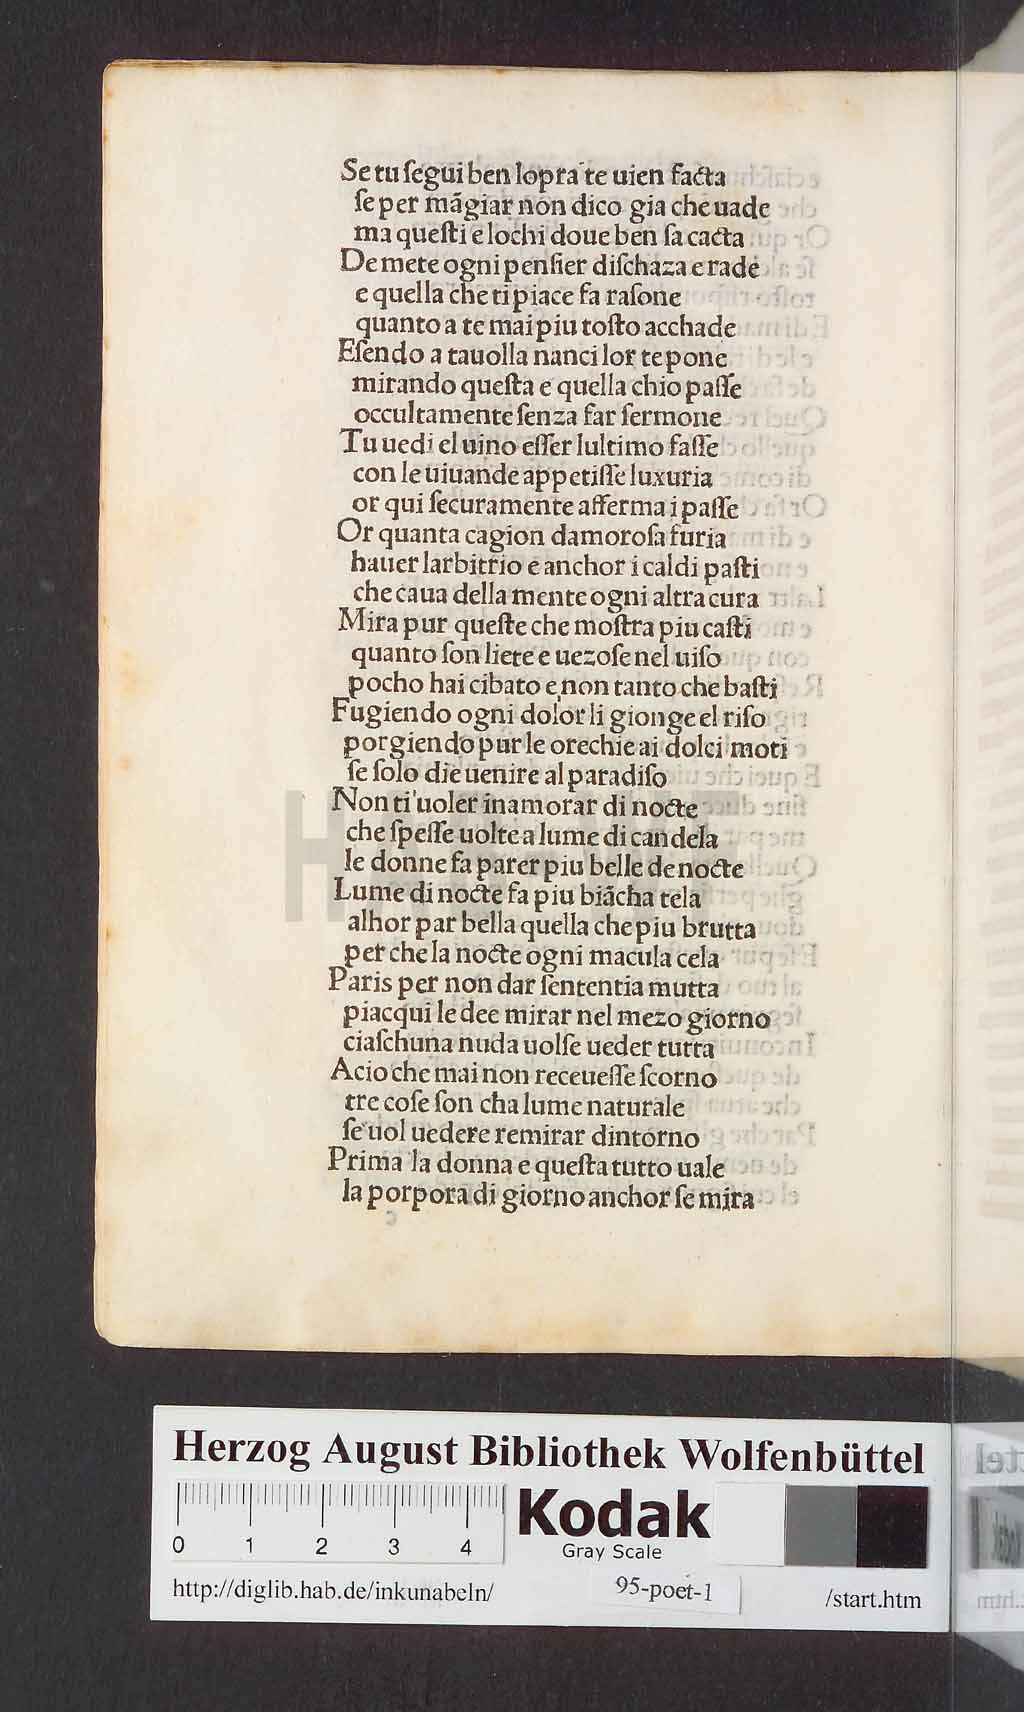 Se tu ſegui ben lopra te uien facta
ſe per mãgiar non dico gia che uade
ma queſti e lochi doue ben ſa cacta
De mete ogni penſier diſchaza e rade
e quella che ti piace fa raſone
quanto a te mai piu toſto acchade
Eſendo a tauolla nanci lor te pone
mirando queſta e quella chio paſſe
occultamente ſenza far ſermone
Tu uedi el uino eſſer lultimo faſſe
con le uiuande appetiſſe luxuria
or qui ſecuramente afferma i paſſe
Or quanta cagion damoroſa furia
hauer larbitrio e anchor i caldi paſti
che caua della mente ogni altra cura
Mira pur queſte che moſtra piu caſti
quanto ſon liete e uezoſe nel uiſo
pocho hai cibato e non tanto che baſti
Fugiendo ogni dolor li gionge el riſo
porgiendo pur le orechie ai dolci moti
ſe ſolo die uenire al paradiſo
Non ti uoler inamorar di nocte
che ſpeſſe uolte a lume di candela
le donne fa parer piu belle de nocte
Lume di nocte fa piu biãcha tela
alhor par bella quella che piu brutta
per che la nocte ogni macula cela
Paris per non dar ſententia mutta
piacqui le dee mirar nel mezo giorno
ciaſchuna nuda uolſe ueder tutta
Acio che mai non receueſſe ſcorno
tre coſe ſon cha lume naturale
ſe uol uedere remirar dintorno
Prima la donna e queſta tutto uale
la porpora di giorno anchor ſe mira
HAB
Herzog August Bibliothek Wolfenbüttel
0 1 2 3 4
Kodak
Gray Scale
http://diglib.hab.de/inkunabeln/ 95-poet-1 /start.htm